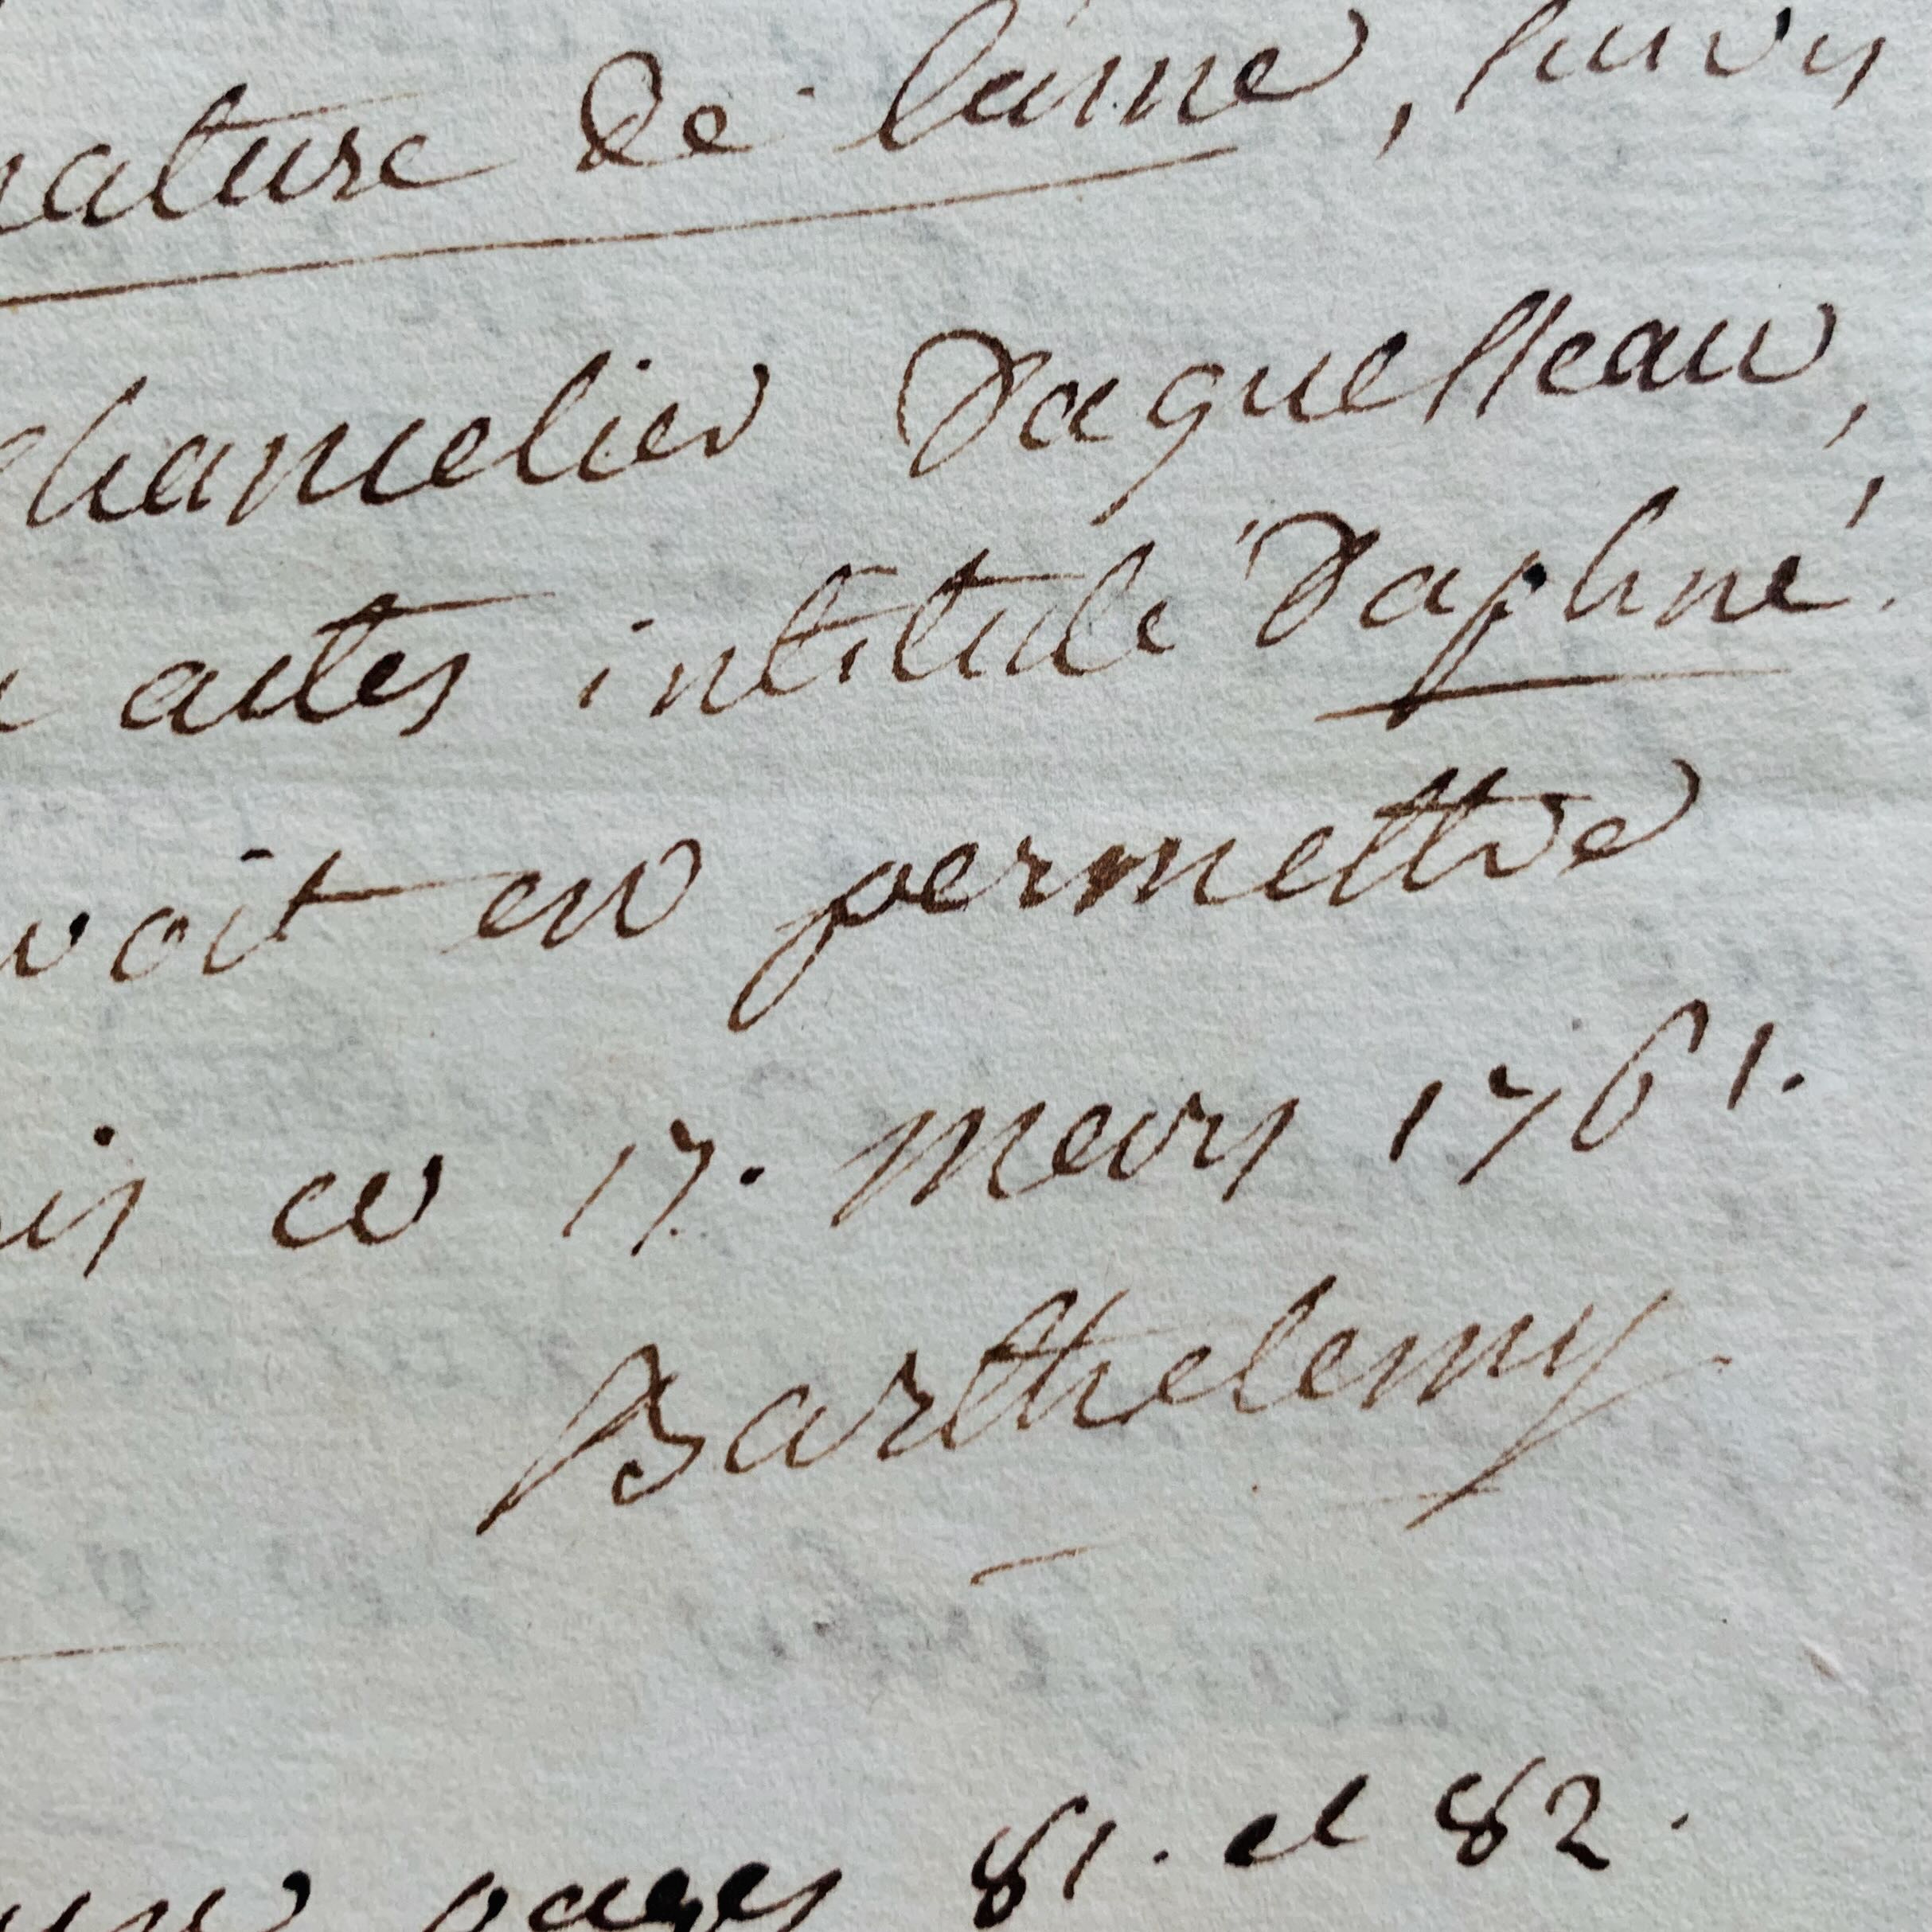 nature de l'âme, suivis
chancelier Daguesseau,
actes intitulé Daphné.
voit en permettre
ce 17. mars 1761.
Barthelemy
pages 81. et 82.